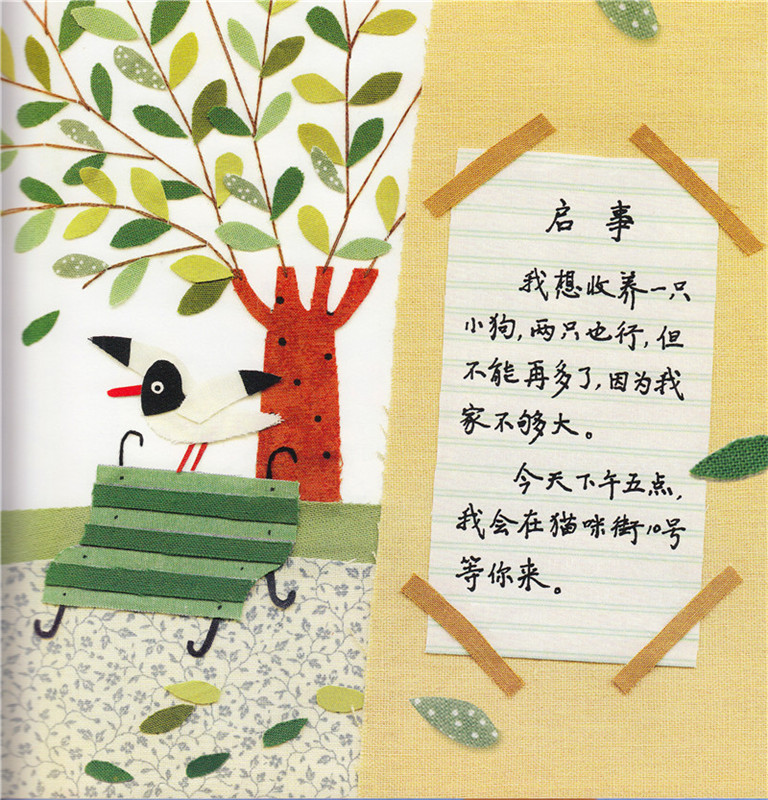 启事
我想收养一只
小狗，两只也行，但
不能再多了，因为我
家不够大。
今天下午五点，
我会在猫咪街10号
等你来。